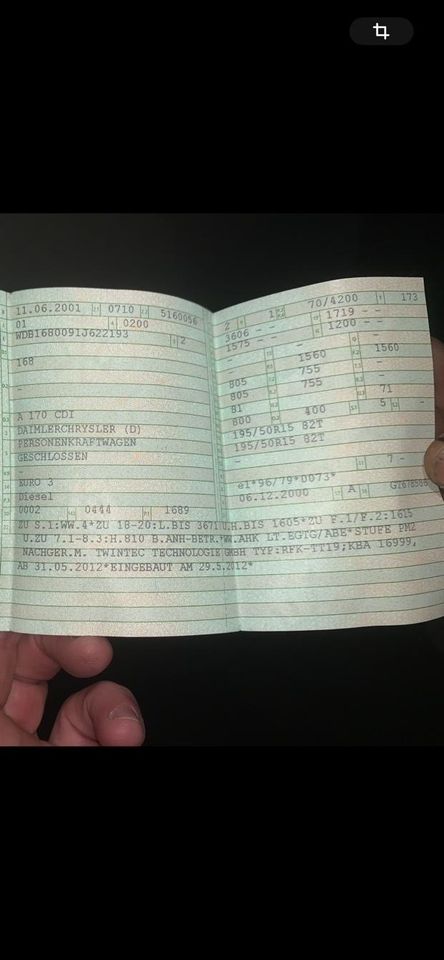 11.06.2001 0710 5160056
01 0200
WDB1680091J622193 2
168
-
-
A 170 CDI
DAIMLERCHRYSLER (D)
PERSONENKRAFTWAGEN
GESCHLOSSEN
-
EURO 3
Diesel
0002 0444 1689
2 1 70/4200 173
3606 - - 1719 - -
1575 - - 1200 - -
- -
- 1560 1560
805 755 -
805 755 -
81 71
800 400 5 -
195/50R15 82T
195/50R15 82T
-
7 -
e1*96/79*0073*
06.12.2000 A
ZU S.1:WW.4*ZU 18-20:L.BIS 3671 U.H.BIS 1605*ZU F.1/F.2:1615
U.ZU 7.1-8.3:H.810 B.ANH-BETR.*WW.AHK LT.EGTG/ABE*STUFE PM2
NACHGER.M. TWINTEC TECHNOLOGIE GMBH TYP:RFK-TT19;KBA 16999,
AB 31.05.2012*EINGEBAUT AM 29.5.2012*